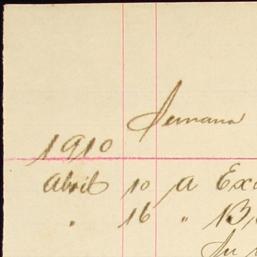 Semana
1910
Abril 10 a Exc
" 16 " 13,
Su